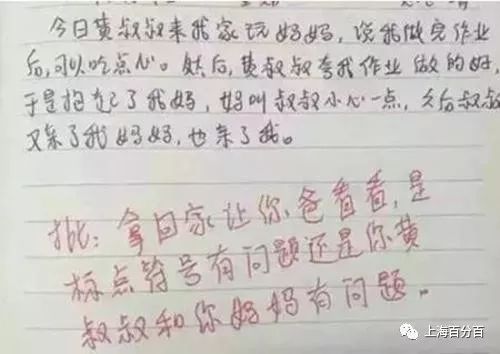 今日黄叔叔来我家玩妈妈,说我做完作业
后,可以吃点心。然后,黄叔叔夸我作业做的好,
于是抱起了我妈,妈叫叔叔小心一点,之后叔叔
又亲了我妈妈,也亲了我。
批:拿回家让你爸看看,是
标点符号有问题还是你黄
叔叔和你妈妈有问题。
上海百分百